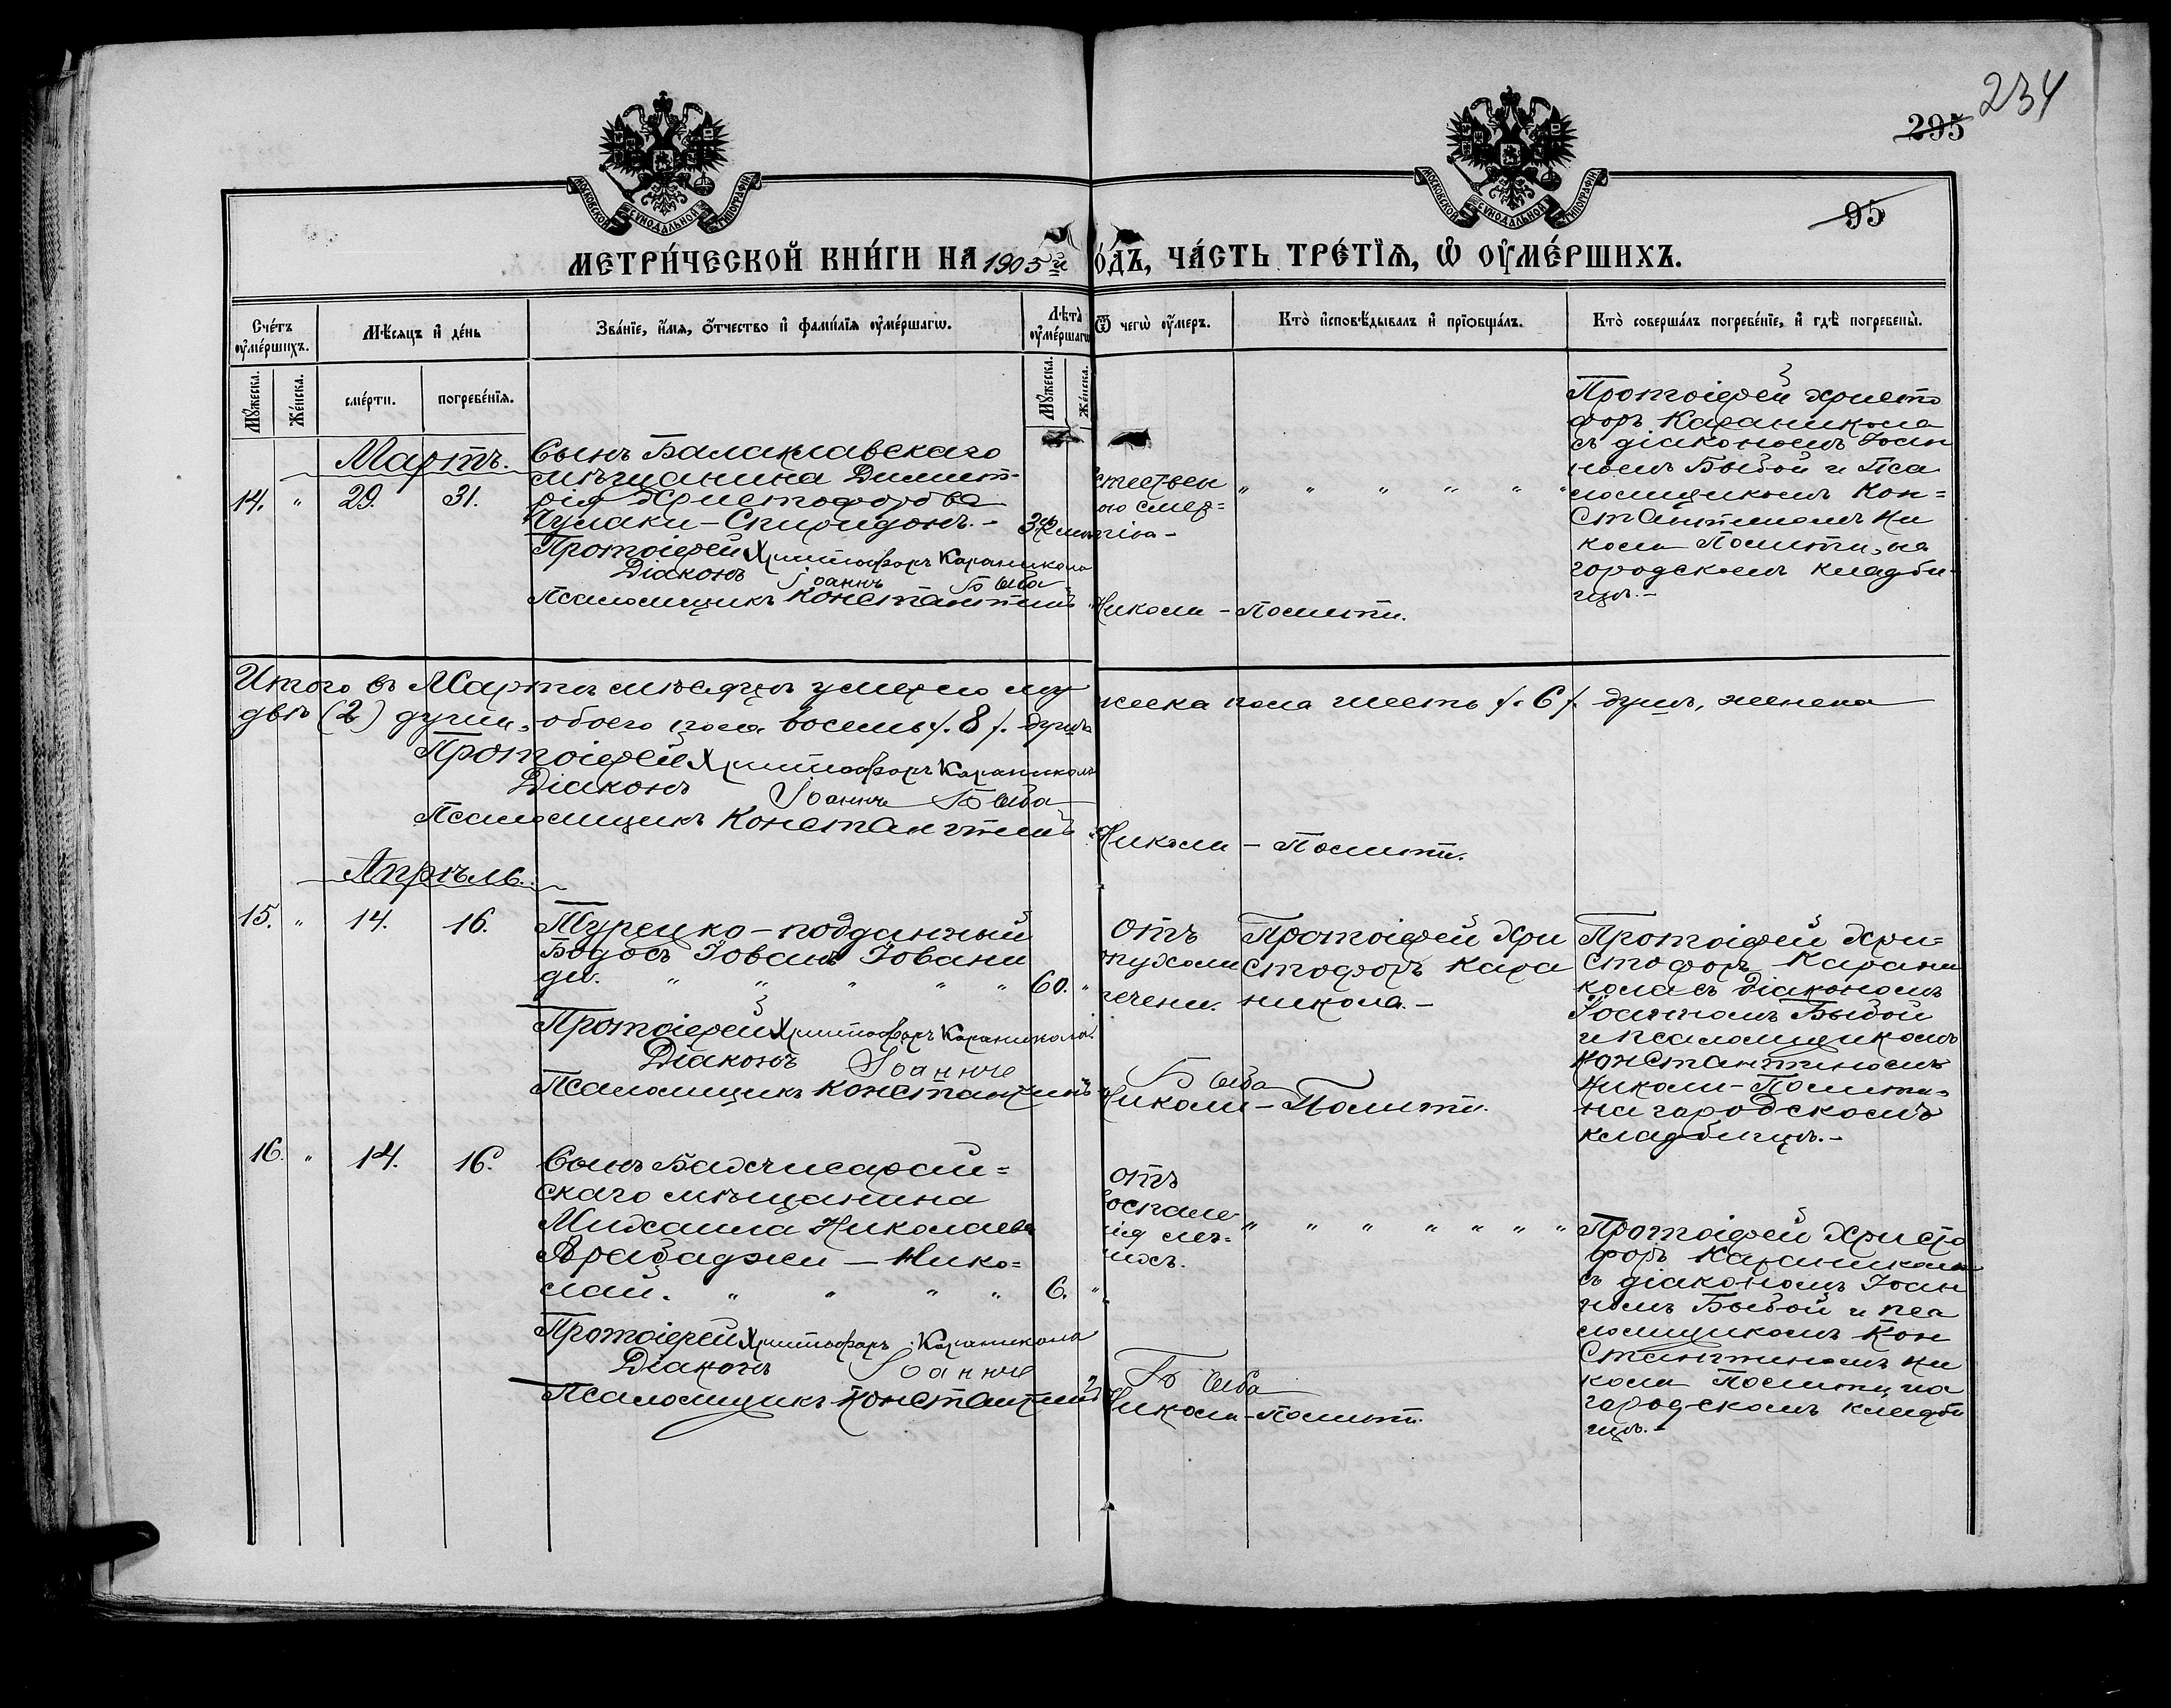 234
295
95
МОСКОВСКОЙ СѴНОДАЛЬНОЙ ТИПОГРАФІИ
МОСКОВСКОЙ СѴНОДАЛЬНОЙ ТИПОГРАФІИ
МЕТРИ́ЧЕСКОЙ КНИ́ГИ НА 1905й ОДЪ, ЧА́СТЬ ТРЕ́ТІѦ, Ѡ ОУМЕ́РШИХЪ.
Счéтъ оумéршихъ.
Мѣсяцъ и дéнь
Звáніе, и́мя, óтчество и фами́лія оумéршагw.
Лѣтà оумéршагw
Ѿ чегẁ оумеръ.
Ктò исповѣ́дывалъ и пріобщáлъ.
Ктò совершáлъ погребéніе, и гдѣ̀ погребены̀.
Мýжеска.
Жéнска.
смéрти.
погребéнія.
Мýжеска.
Жéнска.
Мартъ.
14. " 29. 31.
Сынъ Балаклавскаго
мѣщанина Димит-
рія Христофорова
Чулаки - Спиридонъ. -
стествен
ою смер=
тію -
Протоіерей Христо
форъ Караникола
съ діакономъ Іоан
номъ Быбой и Пса
ломщикомъ Кон=
стантиномъ Ни
коли Полити, на
городскомъ кладби-
щѣ. -
Протоіерей Христофоръ Караникола
Діаконъ Іоаннъ Быба
Псаломщикъ Константинъ Николи - Полити.
Итого въ Мартѣ мѣсяцѣ умерло муж
жеска пола шесть /. 6 /. душъ, женска
двѣ (2) души, обоего пола восемь /. 8 /. душъ
Протоіерей Христофоръ Караникола
Діаконъ Іоаннъ Быба
Псаломщикъ Константинъ Николи - Политі.
Апрѣль.
15. " 14. 16.
Турецко - подданный
Бодосъ Іованъ Іовани
ди. " " " " " 60. "
отъ
опухоли
печени.
Протоіерей Хри
стофоръ Кара
никола. -
Протоіерей Хри=
стофоръ Карани
кола съ діакономъ
Іоанномъ Быбой
и псаломщикомъ
Константиномъ
Николи - Полити,
на городскомъ
кладбищѣ. -
Протоіерей Христофоръ Караникола
Діаконъ Іоаннъ Быба
Псаломщикъ Константинъ Николи - Полити.
16. " 14. 16.
Сынъ Бахчисарай=
скаго мѣщанина
Михаила Николаева
Арабаджи - Нико=
лай. " " " " 6. "
отъ
воспале
нія лег=
кихъ.
Протоіерей Христо
форъ Караникола
съ діакономъ Іоан
номъ Быбой и пса
ломщикомъ Кон
стантиномъ Ни
коли Полити, на
городскомъ кладби
щѣ. -
Протоіерей Христофоръ Караникола
Діаконъ Іоаннъ Быба
Псаломщикъ Константинъ Николи - Полити.